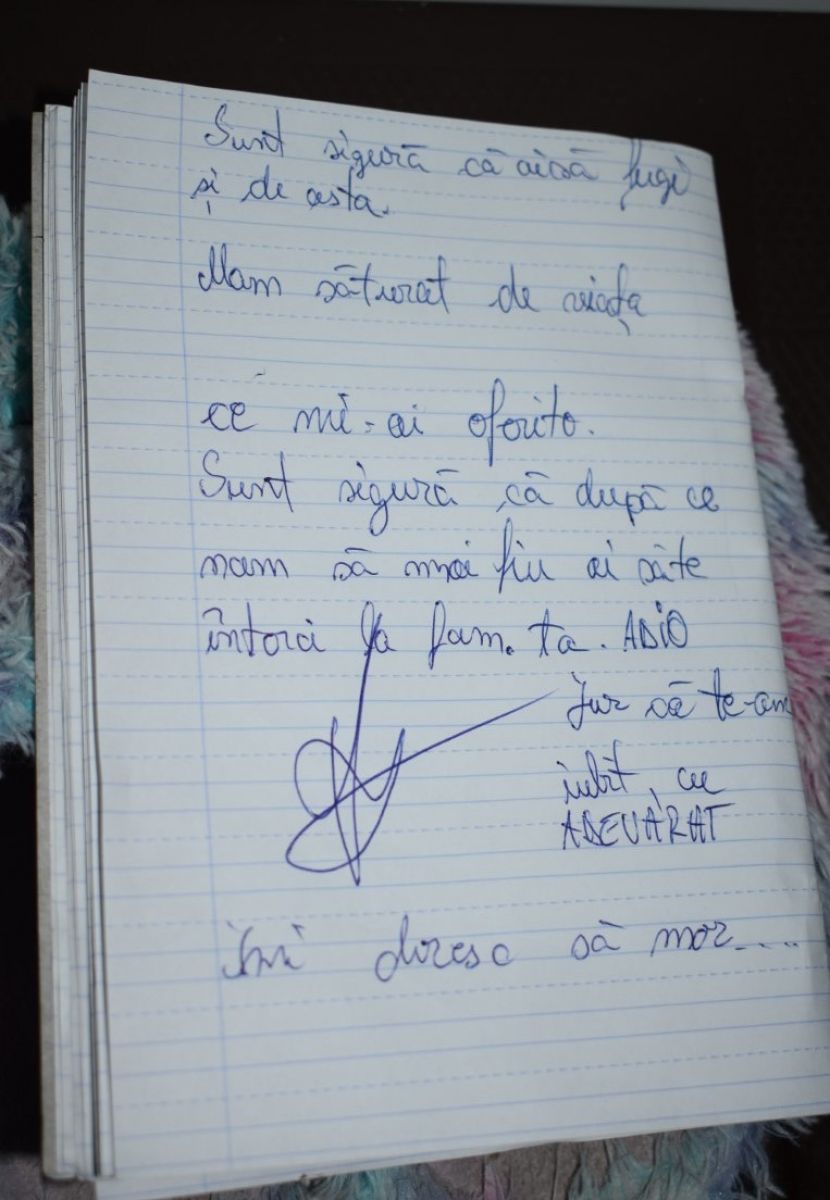 Sunt sigură că aisă fugi
și de asta.
Mam săturat de viața
ce mi-ai oferito.
Sunt sigură că după ce
nam să mai fiu ai săte
întorci la fam. ta. ADIO
Jur că te-am
iubit, cu
ADEVARAT
îmi doresc să mor....